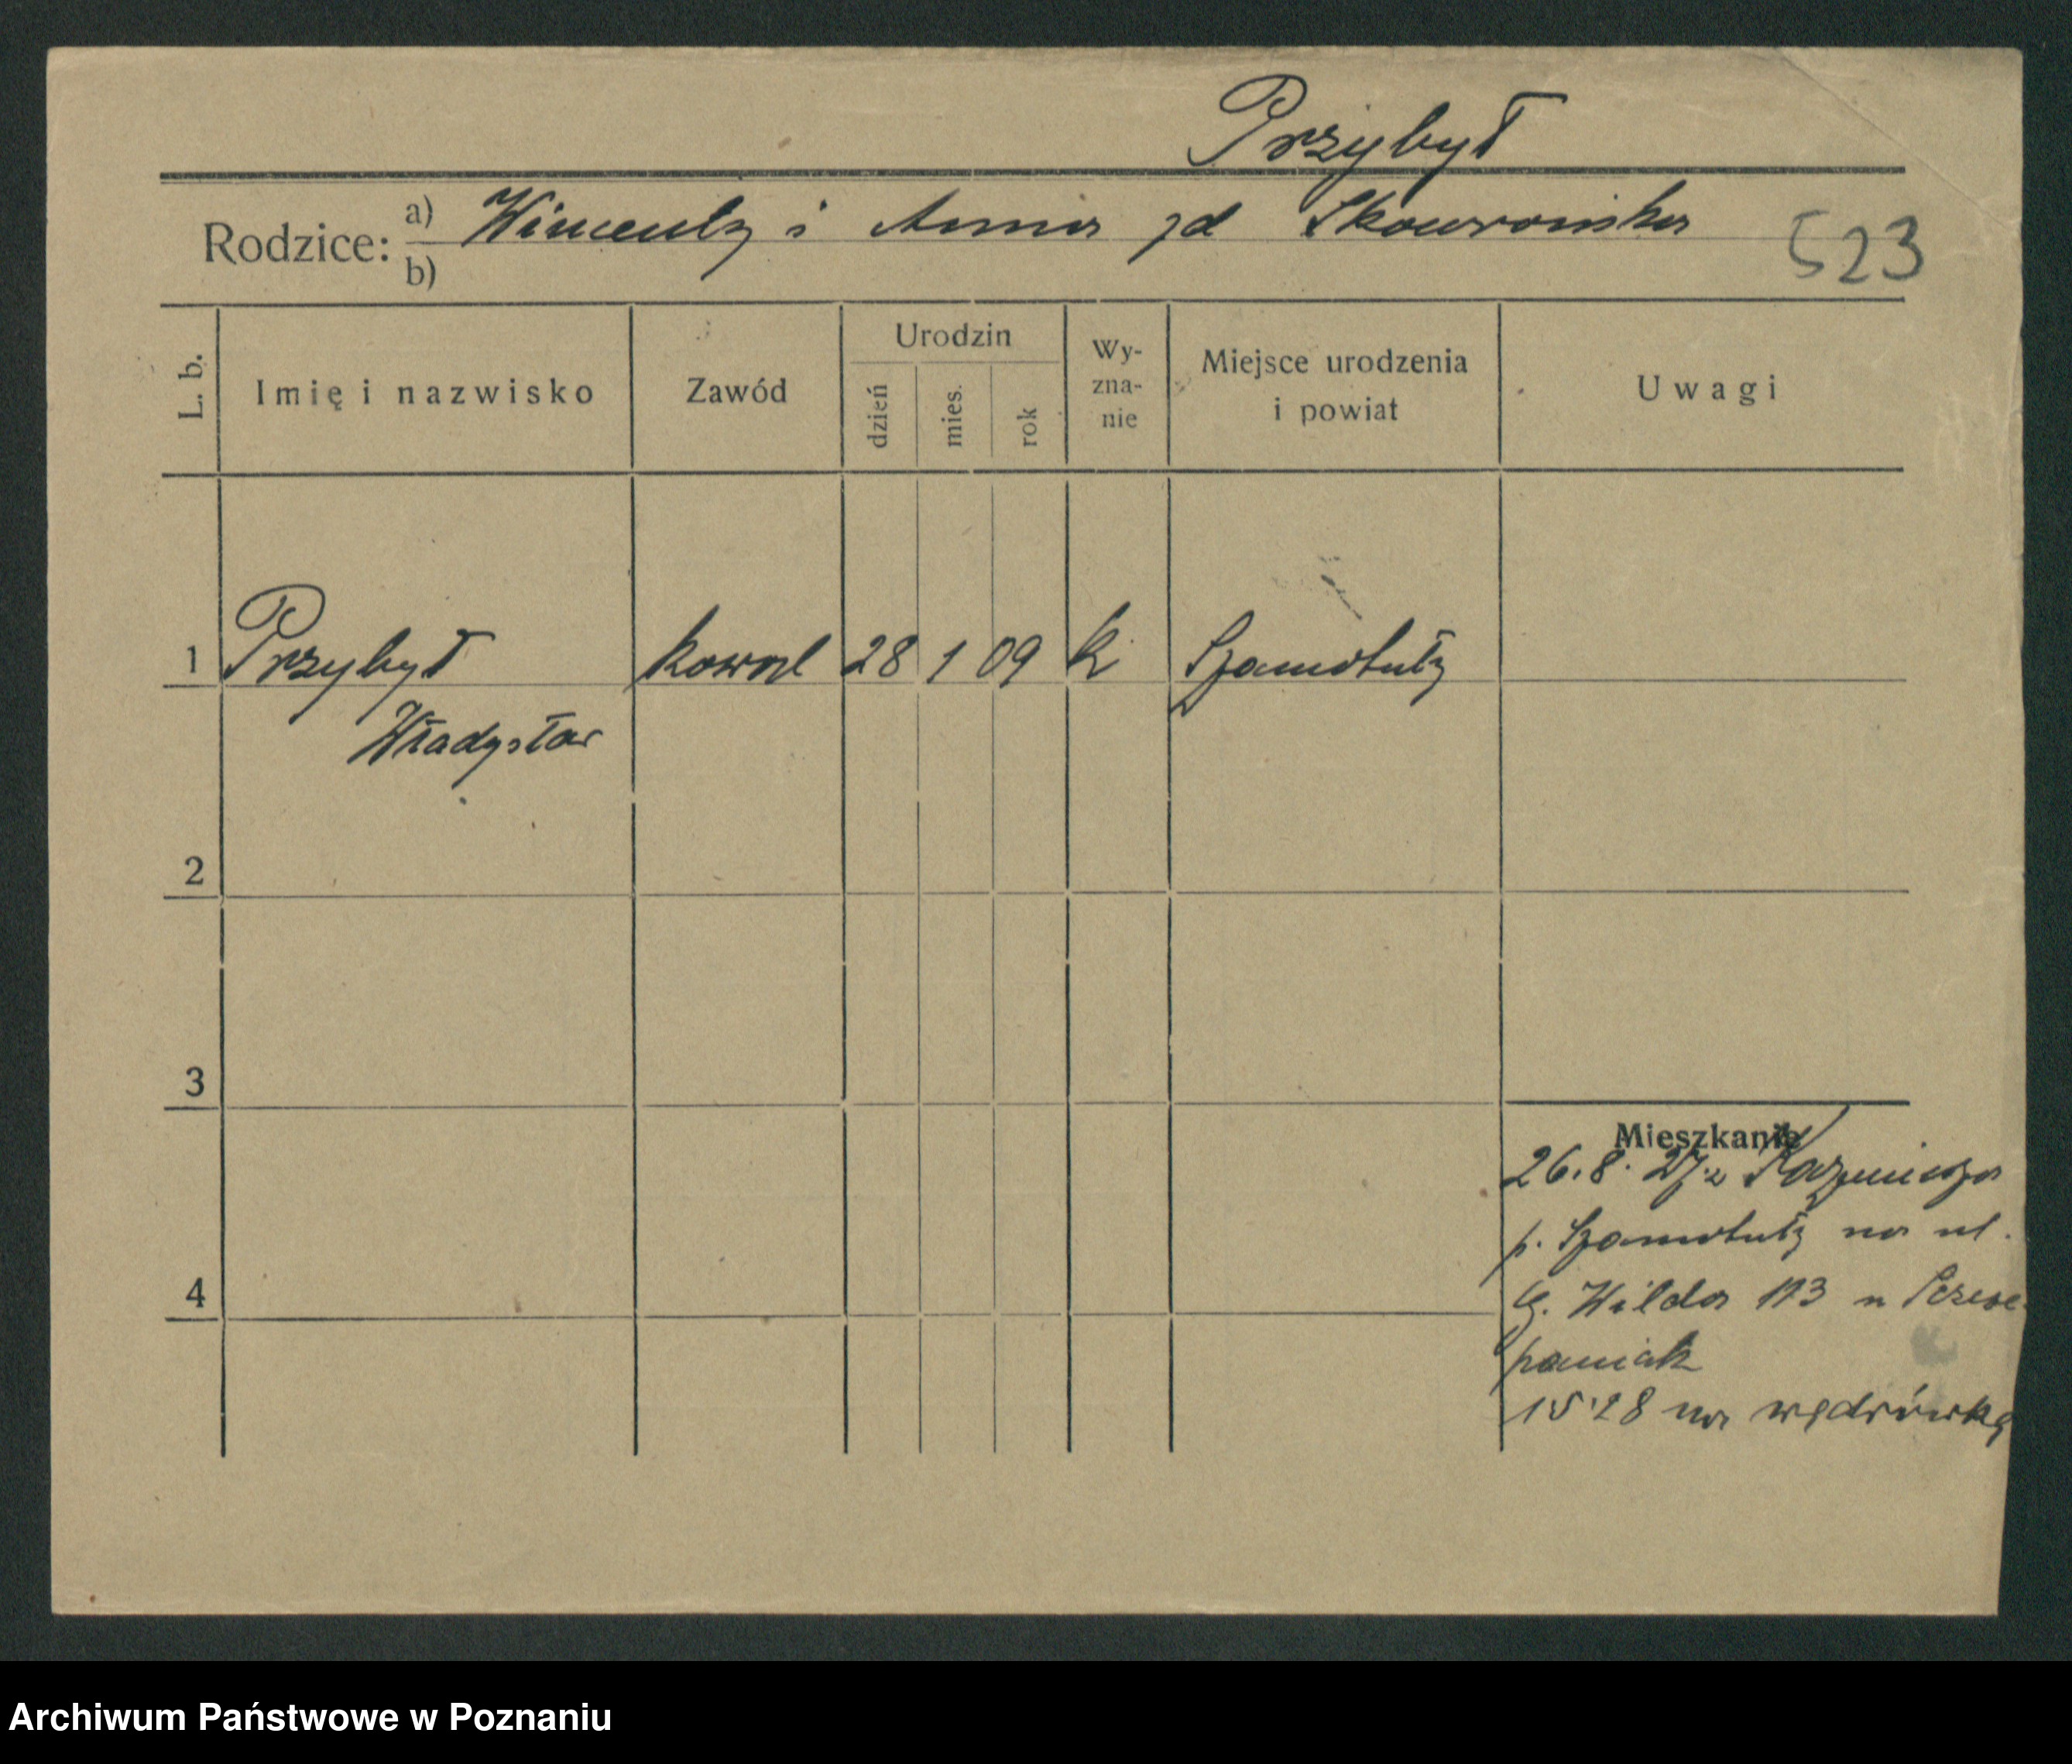 Przybył
Rodzice: a) Wincenty i Anna zd Skowrońska
b)
523
L. b.
Imię i nazwisko
Zawód
Urodzin
dzień
mies.
rok
Wy-
zna-
nie
Miejsce urodzenia
i powiat
Uwagi
1 Przybył kowal 28 1 09 k Szamotuły
Władysław
2
3
4
Mieszkanie
26.8.27 z Kazmierza
p. Szamotuły na ul.
G. Wilda 113 u
15 28 na wędrówkę
Archiwum Państwowe w Poznaniu